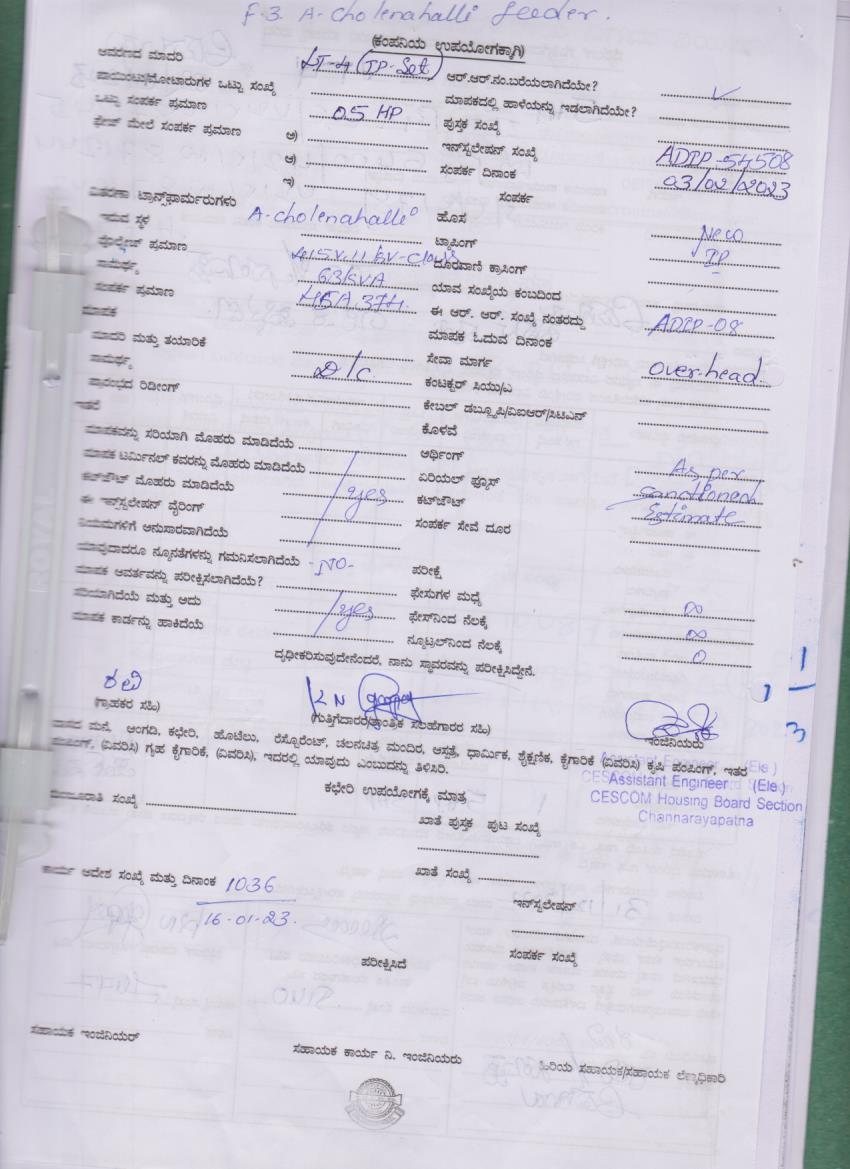 F-3. A-cholenahalli feeder.
(ಕಂಪನಿಯ ಉಪಯೋಗಕ್ಕಾಗಿ)
ಆವರಣದ ಮಾದರಿ LT-4 (IP-Set) ಆರ್.ಆರ್.ನಂ.ಬರೆಯಲಾಗಿದೆಯೇ? ✓
ಪಾಯಿಂಟು/ಮೋಟಾರುಗಳ ಒಟ್ಟು ಸಂಖ್ಯೆ ಮಾಪಕದಲ್ಲಿ ಹಾಳೆಯನ್ನು ಇಡಲಾಗಿದೆಯೇ?
ಒಟ್ಟು ಸಂಪರ್ಕ ಪ್ರಮಾಣ 05 HP ಪುಸ್ತಕ ಸಂಖ್ಯೆ
ಫೇಸ್ ಮೇಲೆ ಸಂಪರ್ಕ ಪ್ರಮಾಣ ಅ) ಇನ್‌ಸ್ಟಲೇಷನ್ ಸಂಖ್ಯೆ ADIP-54508
ಆ) ಸಂಪರ್ಕ ದಿನಾಂಕ 03/02/2023
ಇ) ಸಂಪರ್ಕ
ವಿತರಣಾ ಟ್ರಾನ್ಸ್‌ಫಾರ್ಮರುಗಳು
ಇರುವ ಸ್ಥಳ A-cholenahalli ಹೊಸ New
ವೋಲ್ಟೇಜ್ ಪ್ರಮಾಣ 415V.11 kV-class ಟ್ಯಾಪಿಂಗ್ IP
ಸಾಮರ್ಥ್ಯ 63 kVA ದೂರವಾಣಿ ಕ್ರಾಸಿಂಗ್
ಸಂಪರ್ಕ ಪ್ರಮಾಣ ಯಾವ ಸಂಖ್ಯೆಯ ಕಂಬದಿಂದ
ಮಾಪಕ ಈ ಆರ್. ಆರ್. ಸಂಖ್ಯೆ ನಂತರದ್ದು ADIP-08
ಮಾದರಿ ಮತ್ತು ತಯಾರಿಕೆ ಮಾಪಕ ಓದುವ ದಿನಾಂಕ
ಸಾಮರ್ಥ್ಯ D/C ಸೇವಾ ಮಾರ್ಗ over-head
ಪ್ರಾರಂಭದ ರಿಡೀಂಗ್ ಕಂಟಕ್ಟರ್ ಸಿಯು/ಎ
ಇತರೆ ಕೇಬಲ್ ಡಬ್ಲ್ಯೂಪಿ/ವಿಐಆರ್/ಸಿಟಿಎಸ್
ಕೊಳವೆ
ಮಾಪಕವನ್ನು ಸರಿಯಾಗಿ ಮೊಹರು ಮಾಡಿದೆಯೆ ಅರ್ಥಿಂಗ್
ಮಾಪಕ ಟರ್ಮಿನಲ್ ಕವರನ್ನು ಮೊಹರು ಮಾಡಿದೆಯೆ ಏರಿಯಲ್ ಫ್ಯೂಸ್ As per
ಕಟ್‌ಔಟ್ ಮೊಹರು ಮಾಡಿದೆಯೆ yes ಕಟ್‌ಔಟ್ sanctioned
ಈ ಇನ್‌ಸ್ಟಲೇಷನ್ ವೈರಿಂಗ್ ಸಂಪರ್ಕ ಸೇವೆ ದೂರ Estimate
ನಿಯಮಗಳಿಗೆ ಅನುಸಾರವಾಗಿದೆಯೆ
ಯಾವುದಾದರೂ ನ್ಯೂನತೆಗಳನ್ನು ಗಮನಿಸಲಾಗಿದೆಯೆ -NO- ಪರೀಕ್ಷೆ
ಮಾಪಕ ಆವರ್ತವನ್ನು ಪರೀಕ್ಷಿಸಲಾಗಿದೆಯೆ? ಫೇಸುಗಳ ಮಧ್ಯೆ ∞
ಸರಿಯಾಗಿದೆಯೆ ಮತ್ತು ಅದು yes ಫೇಸ್‌ನಿಂದ ನೆಲಕ್ಕೆ ∞
ಮಾಪಕ ಕಾರ್ಡನ್ನು ಹಾಕಿದೆಯೆ ನ್ಯೂಟ್ರಲ್‌ನಿಂದ ನೆಲಕ್ಕೆ 0
ದೃಢೀಕರಿಸುವುದೇನೆಂದರೆ, ನಾನು ಸ್ಥಾವರವನ್ನು ಪರೀಕ್ಷಿಸಿದ್ದೇನೆ.
1
3
(ಗ್ರಾಹಕರ ಸಹಿ) (ಗುತ್ತಿಗೆದಾರರ/ತಾಂತ್ರಿಕ ಸಲಹೆಗಾರರ ಸಹಿ) ಇಂಜಿನಿಯರು
ವಾಸದ ಮನೆ, ಅಂಗಡಿ, ಕಛೇರಿ, ಹೊಟೆಲು, ರೆಸ್ಟೊರೆಂಟ್, ಚಲನಚಿತ್ರ ಮಂದಿರ, ಆಸ್ಪತ್ರೆ, ಧಾರ್ಮಿಕ, ಶೈಕ್ಷಣಿಕ, ಕೈಗಾರಿಕೆ (ವಿವರಿಸಿ) ಕೃಷಿ ಪಂಪಿಂಗ್, ಇತರ
ಪಂಪಿಂಗ್, (ವಿವರಿಸಿ) ಗೃಹ ಕೈಗಾರಿಕೆ, (ವಿವರಿಸಿ), ಇದರಲ್ಲಿ ಯಾವುದು ಎಂಬುದನ್ನು ತಿಳಿಸಿರಿ.
Assistant Engineer (Ele.)
CESCOM Housing Board Section
Channarayapatna
ಕಛೇರಿ ಉಪಯೋಗಕ್ಕೆ ಮಾತ್ರ
ಸಂಖ್ಯೆ ಖಾತೆ ಪುಸ್ತಕ ಪುಟ ಸಂಖ್ಯೆ
ಕಾರ್ಯ ಆದೇಶ ಸಂಖ್ಯೆ ಮತ್ತು ದಿನಾಂಕ 1036 ಖಾತೆ ಸಂಖ್ಯೆ
16-01-23. ಇನ್‌ಸ್ಟಲೇಷನ್
ಪರೀಕ್ಷಿಸಿದೆ ಸಂಪರ್ಕ ಸಂಖ್ಯೆ
ಸಹಾಯಕ ಇಂಜಿನಿಯರ್ ಸಹಾಯಕ ಕಾರ್ಯ ನಿ. ಇಂಜಿನಿಯರು ಹಿರಿಯ ಸಹಾಯಕ/ಸಹಾಯಕ ಲೆಕ್ಕಾಧಿಕಾರಿ